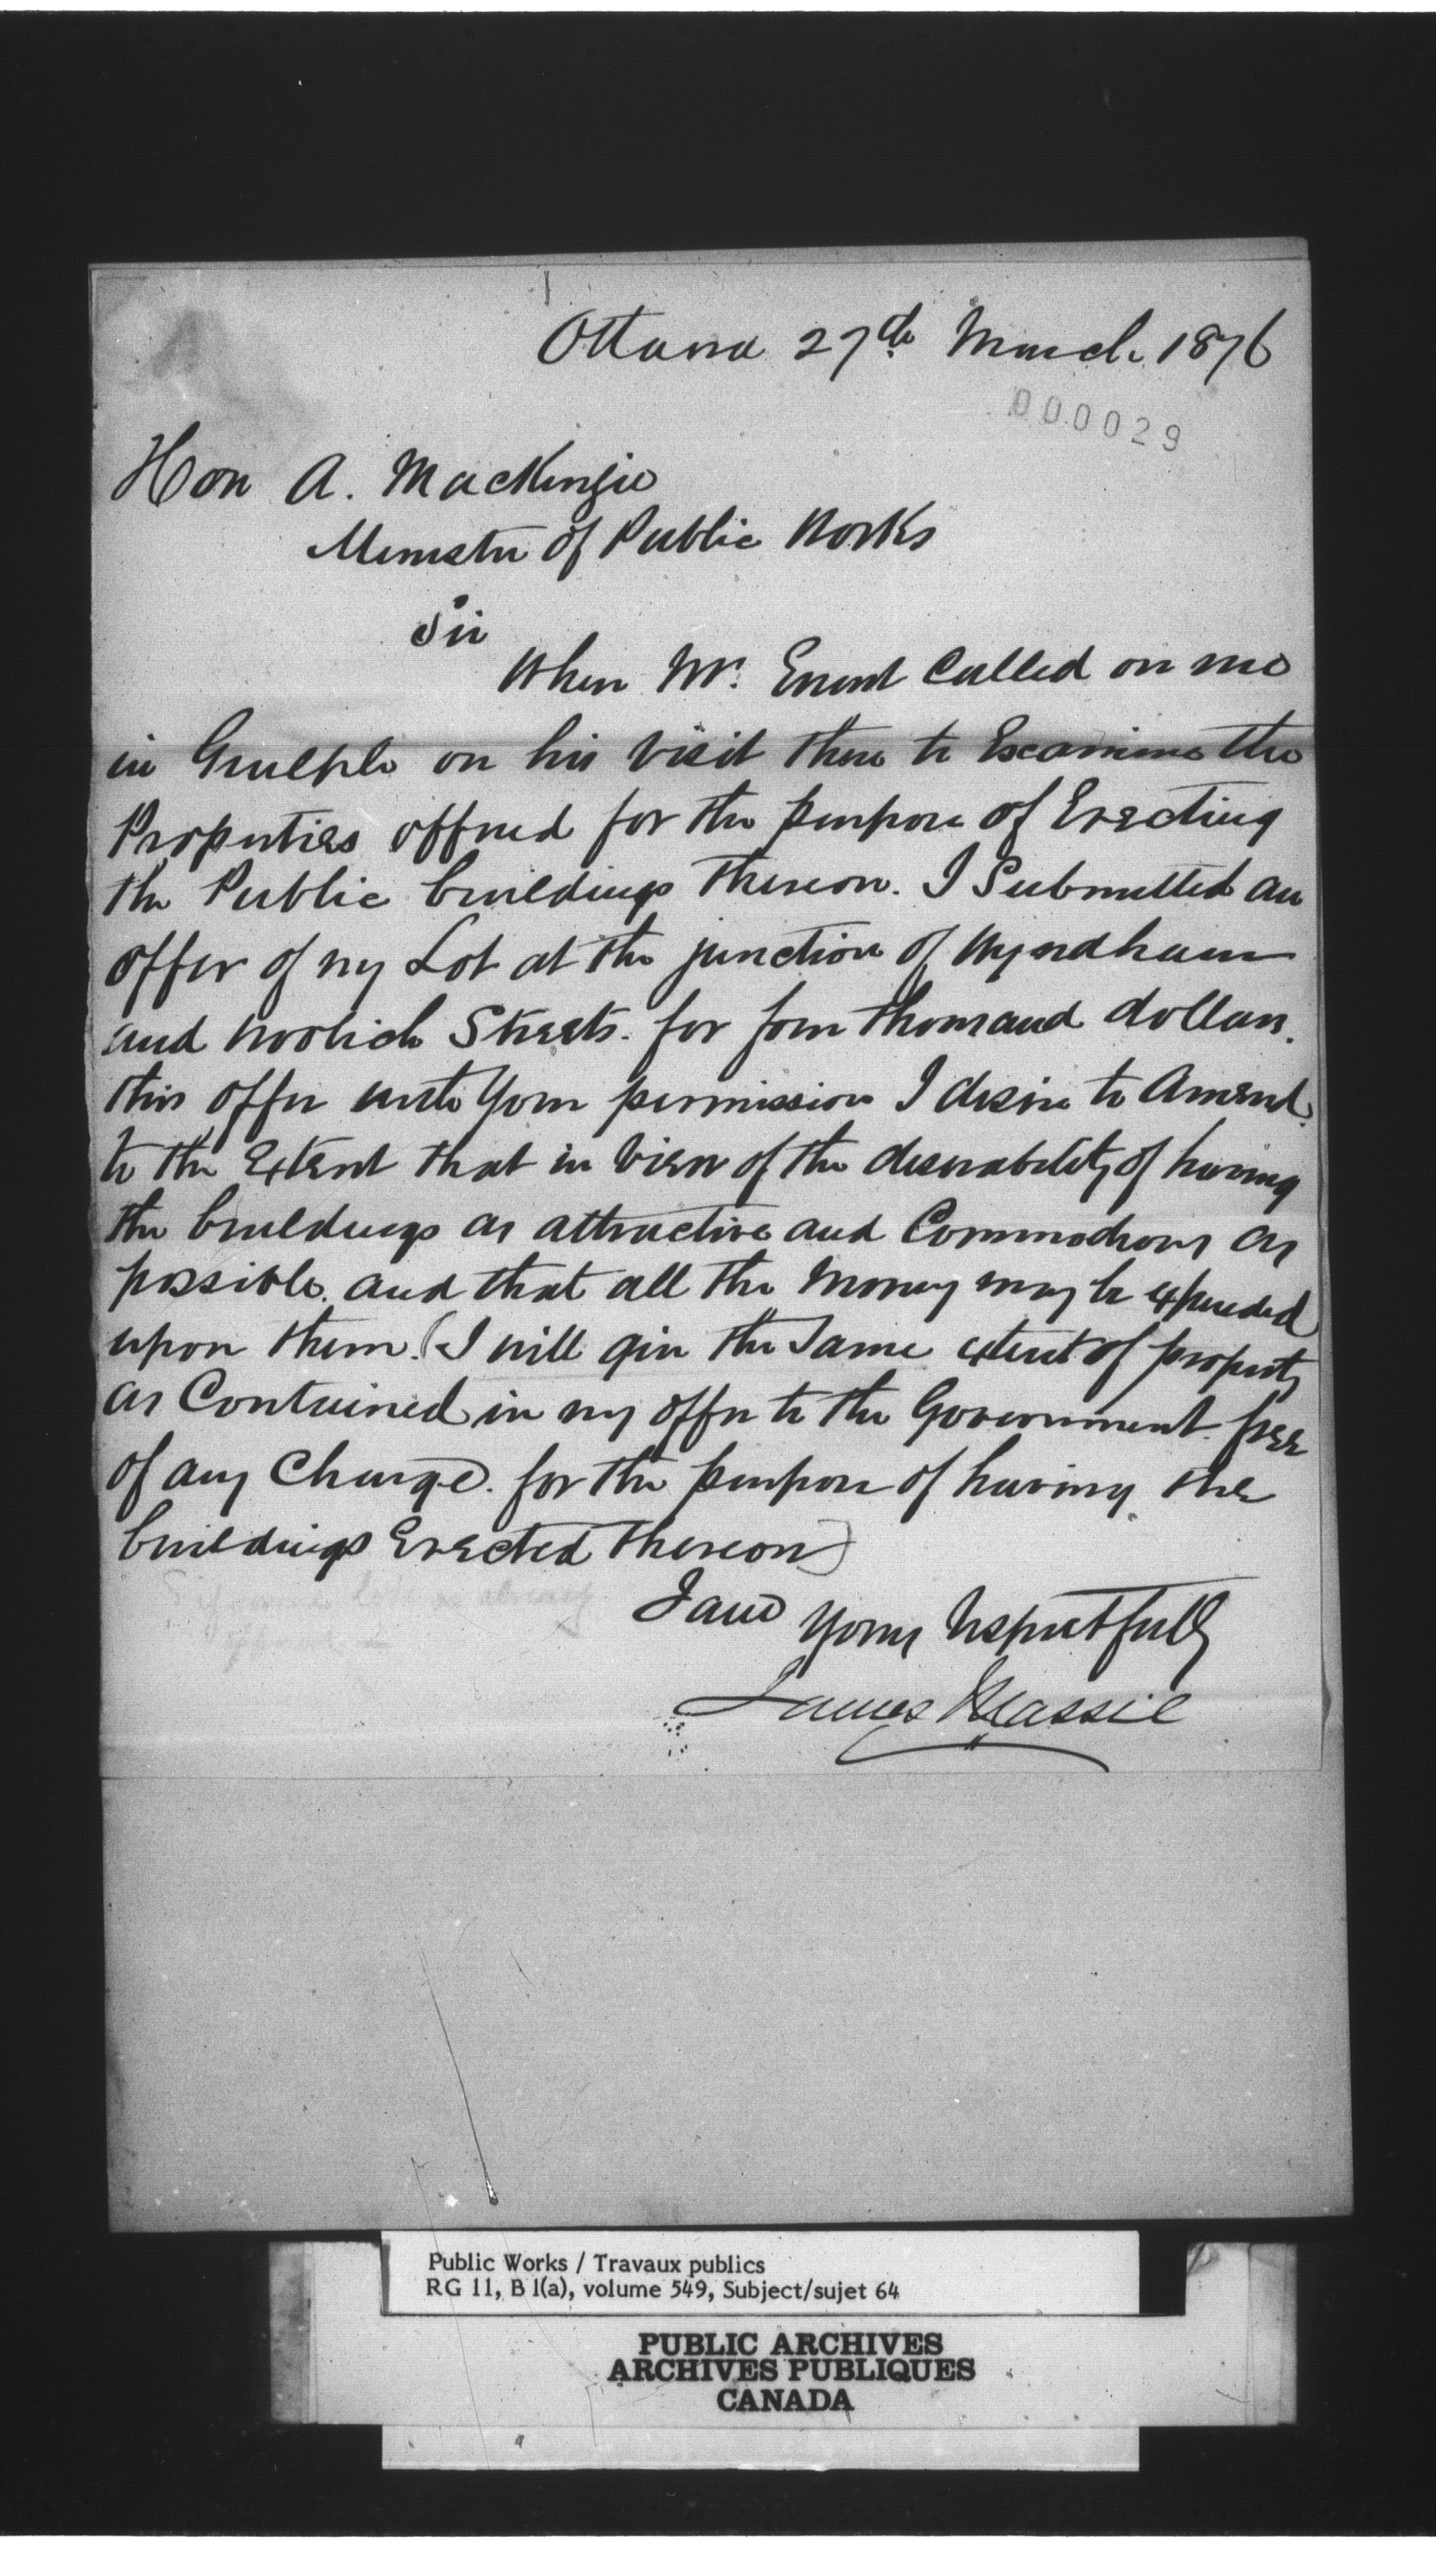 Ottawa 27th March 1876
000029
Hon A. MacKenzie
Minister of Public Works
Sir
When Mr. Ewart Called on me
in Guelph on his visit there to Examine the
Properties offered for the purpose of Erecting
the Public buildings thereon. I Submitted an
offer of my Lot at the junction of Wyndham
and Woolich Streets. for four thousand dollars.
this offer with Your permission I desire to Amend.
to the Extent that in view of the desirability of having
the buildings as attractive and Commodious as
possible. and that all the Money may be expended
upon them. (I will give the Same extent of property
as Contained in my offer to the Government free
of any Charge. for the purpose of having the
buildings Erected thereon)
I am Yours respectfully
James Massie
Public Works / Travaux publics
RG 11, B 1(a), volume 549, Subject/sujet 64
PUBLIC ARCHIVES
ARCHIVES PUBLIQUES
CANADA